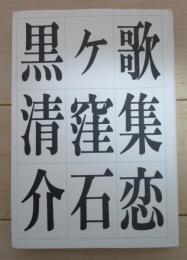 歌集恋
ヶ窪石
黒清介